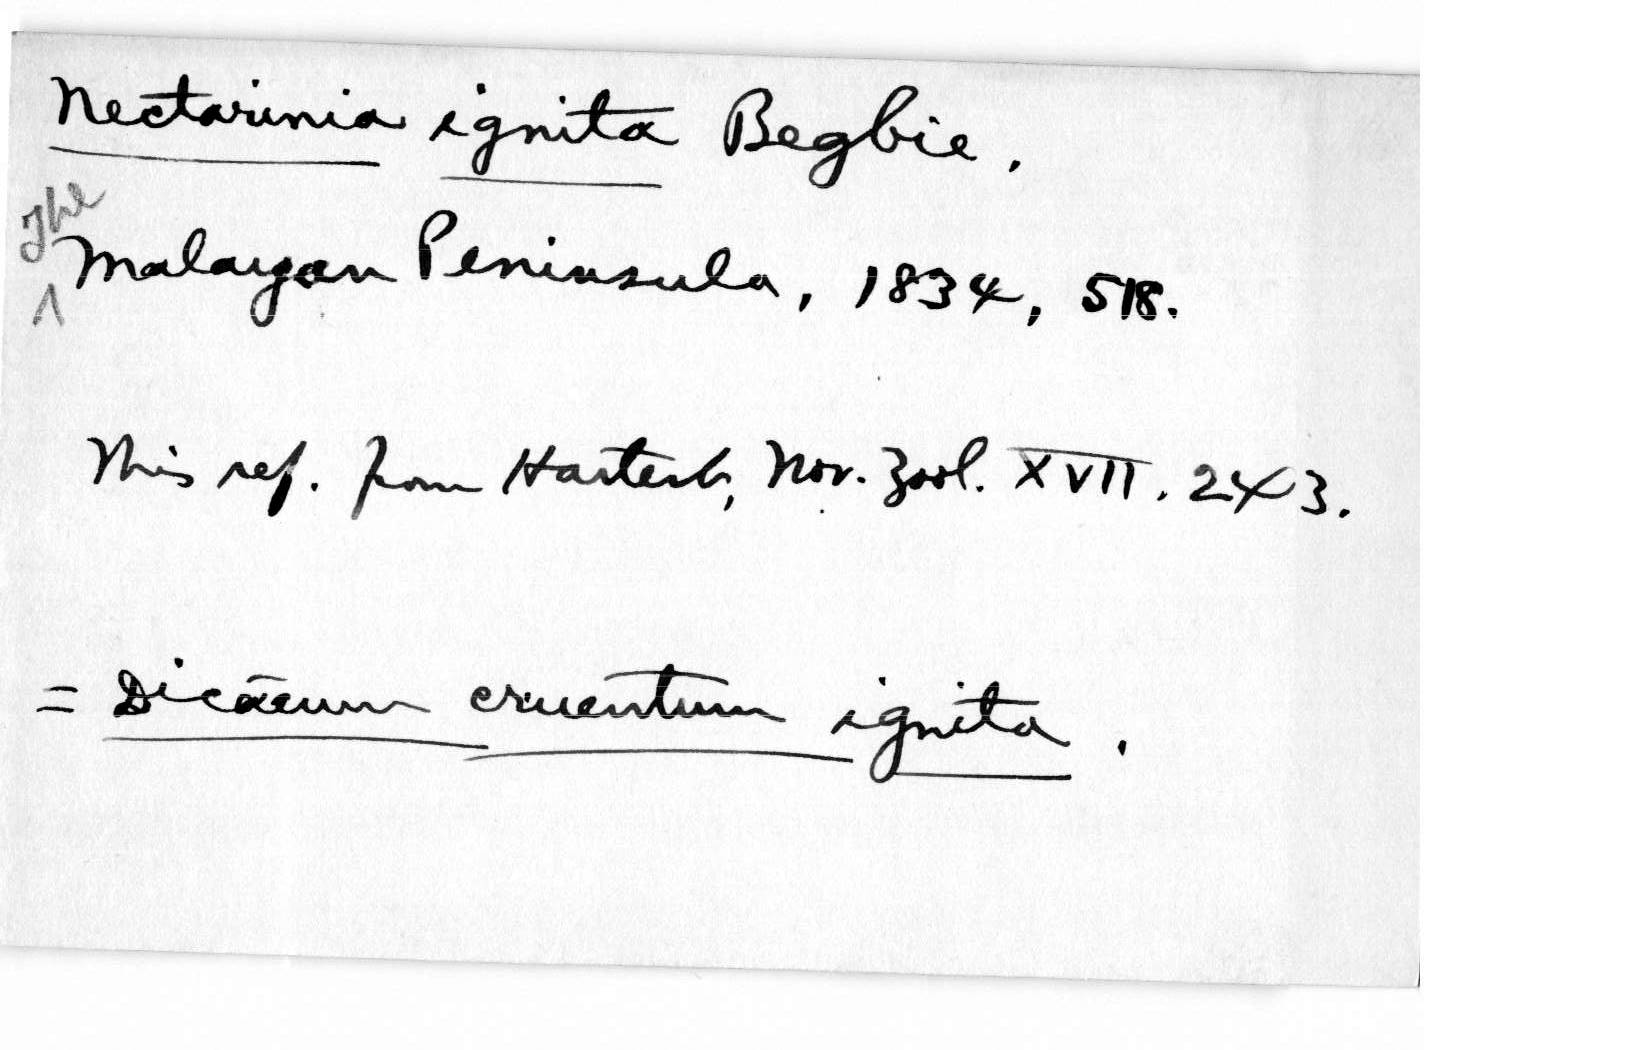 Nectarinia ignita Begbie.
The Malayan Peninsula, 1834, 518.
This ref. from Hartert, Nov. Zool. XVII. 243.
= Dicaeum cruentum ignita.